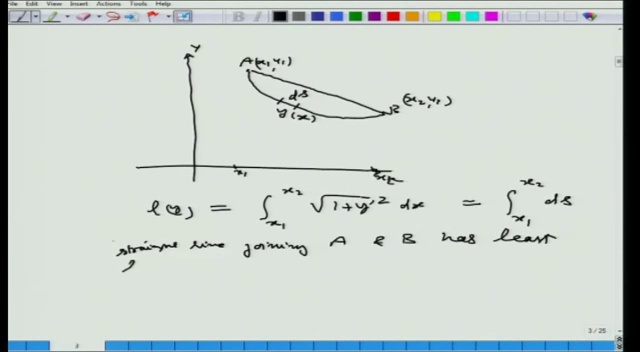 File Edit View Insert Actions Tools Help
Y
A(x₁,y₁)
ds
B (x₂,y₁)
y(x)
x₁
l(y) = ∫_{x₁}^{x₂} √1+y'² dx = ∫_{x₁}^{x₂} ds
straight line joining A & B has least
3 / 25
3